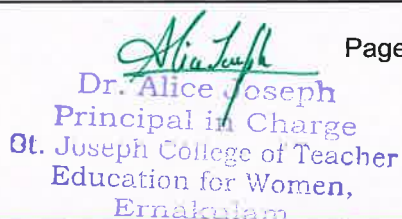 Page
Alice Joseph
Dr. Alice Joseph
Principal in Charge
St. Joseph College of Teacher
Education for Women,
Ernakulam